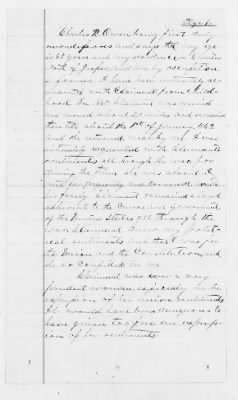 Charles R. Owen being first duly
sworn deposes and says that my age
is 68 years and my residence is 6 miles
north of Jasper and am by occupation
a farmer. I have been intimately ac-
quainted with Claimant from Child-
hood. In 1861 Claimant was married
and moved about 20 miles and remained
there till about the 1st of January 1863
and she returned near by me. I was
intimately acquainted with Claimants
sentiments all through the war, for
during the time she was absent I
and converse with
her freely. Claimant remained a loyal
adherent to the Cause and Government
of the United States all through the
war. Claimant knew my polit-
ical sentiments and that I was for
the Union and the Constitution and
she so confided in me.
Claimant was ever a very
prudent woman especially in the
expression of her union sentiments.
It would have been dangerous to
have given too free an expres-
sion of her sentiments.